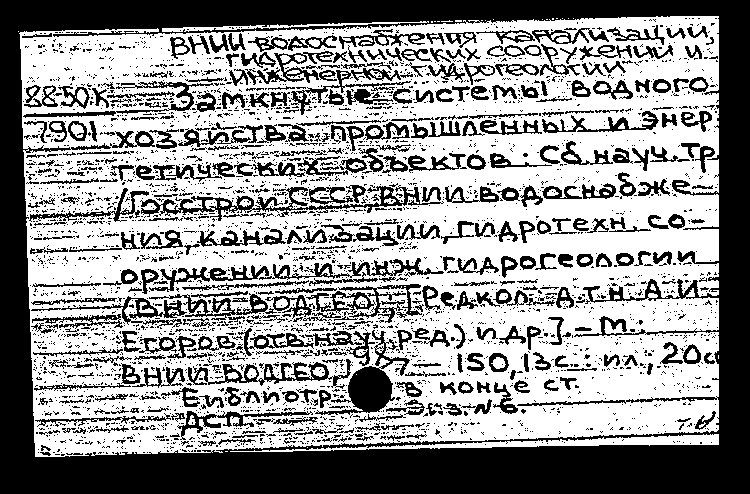 ВНИИ водоснабжения канализации,
гидротехнических сооружений и
инженерной гидрогеологии
8850к Замкнутые системы водного
7901 хозяйства промышленных и энер
гетических объектов: Сб. науч. тр
/Госстрой СССР, ВНИИ водоснабже-
ния, канализации, гидротехн. со-
оружений и инж. гидрогеологии
(ВНИИ ВОДГЕО); [Редкол. д.т.н. А.И.
Егоров (отв. науч. ред.) и др.]. – М.:
ВНИИ ВОДГЕО, – 150, 13 с.: ил.; 20см
Библиогр. в конце ст.
ДСП. Экз. № 6.